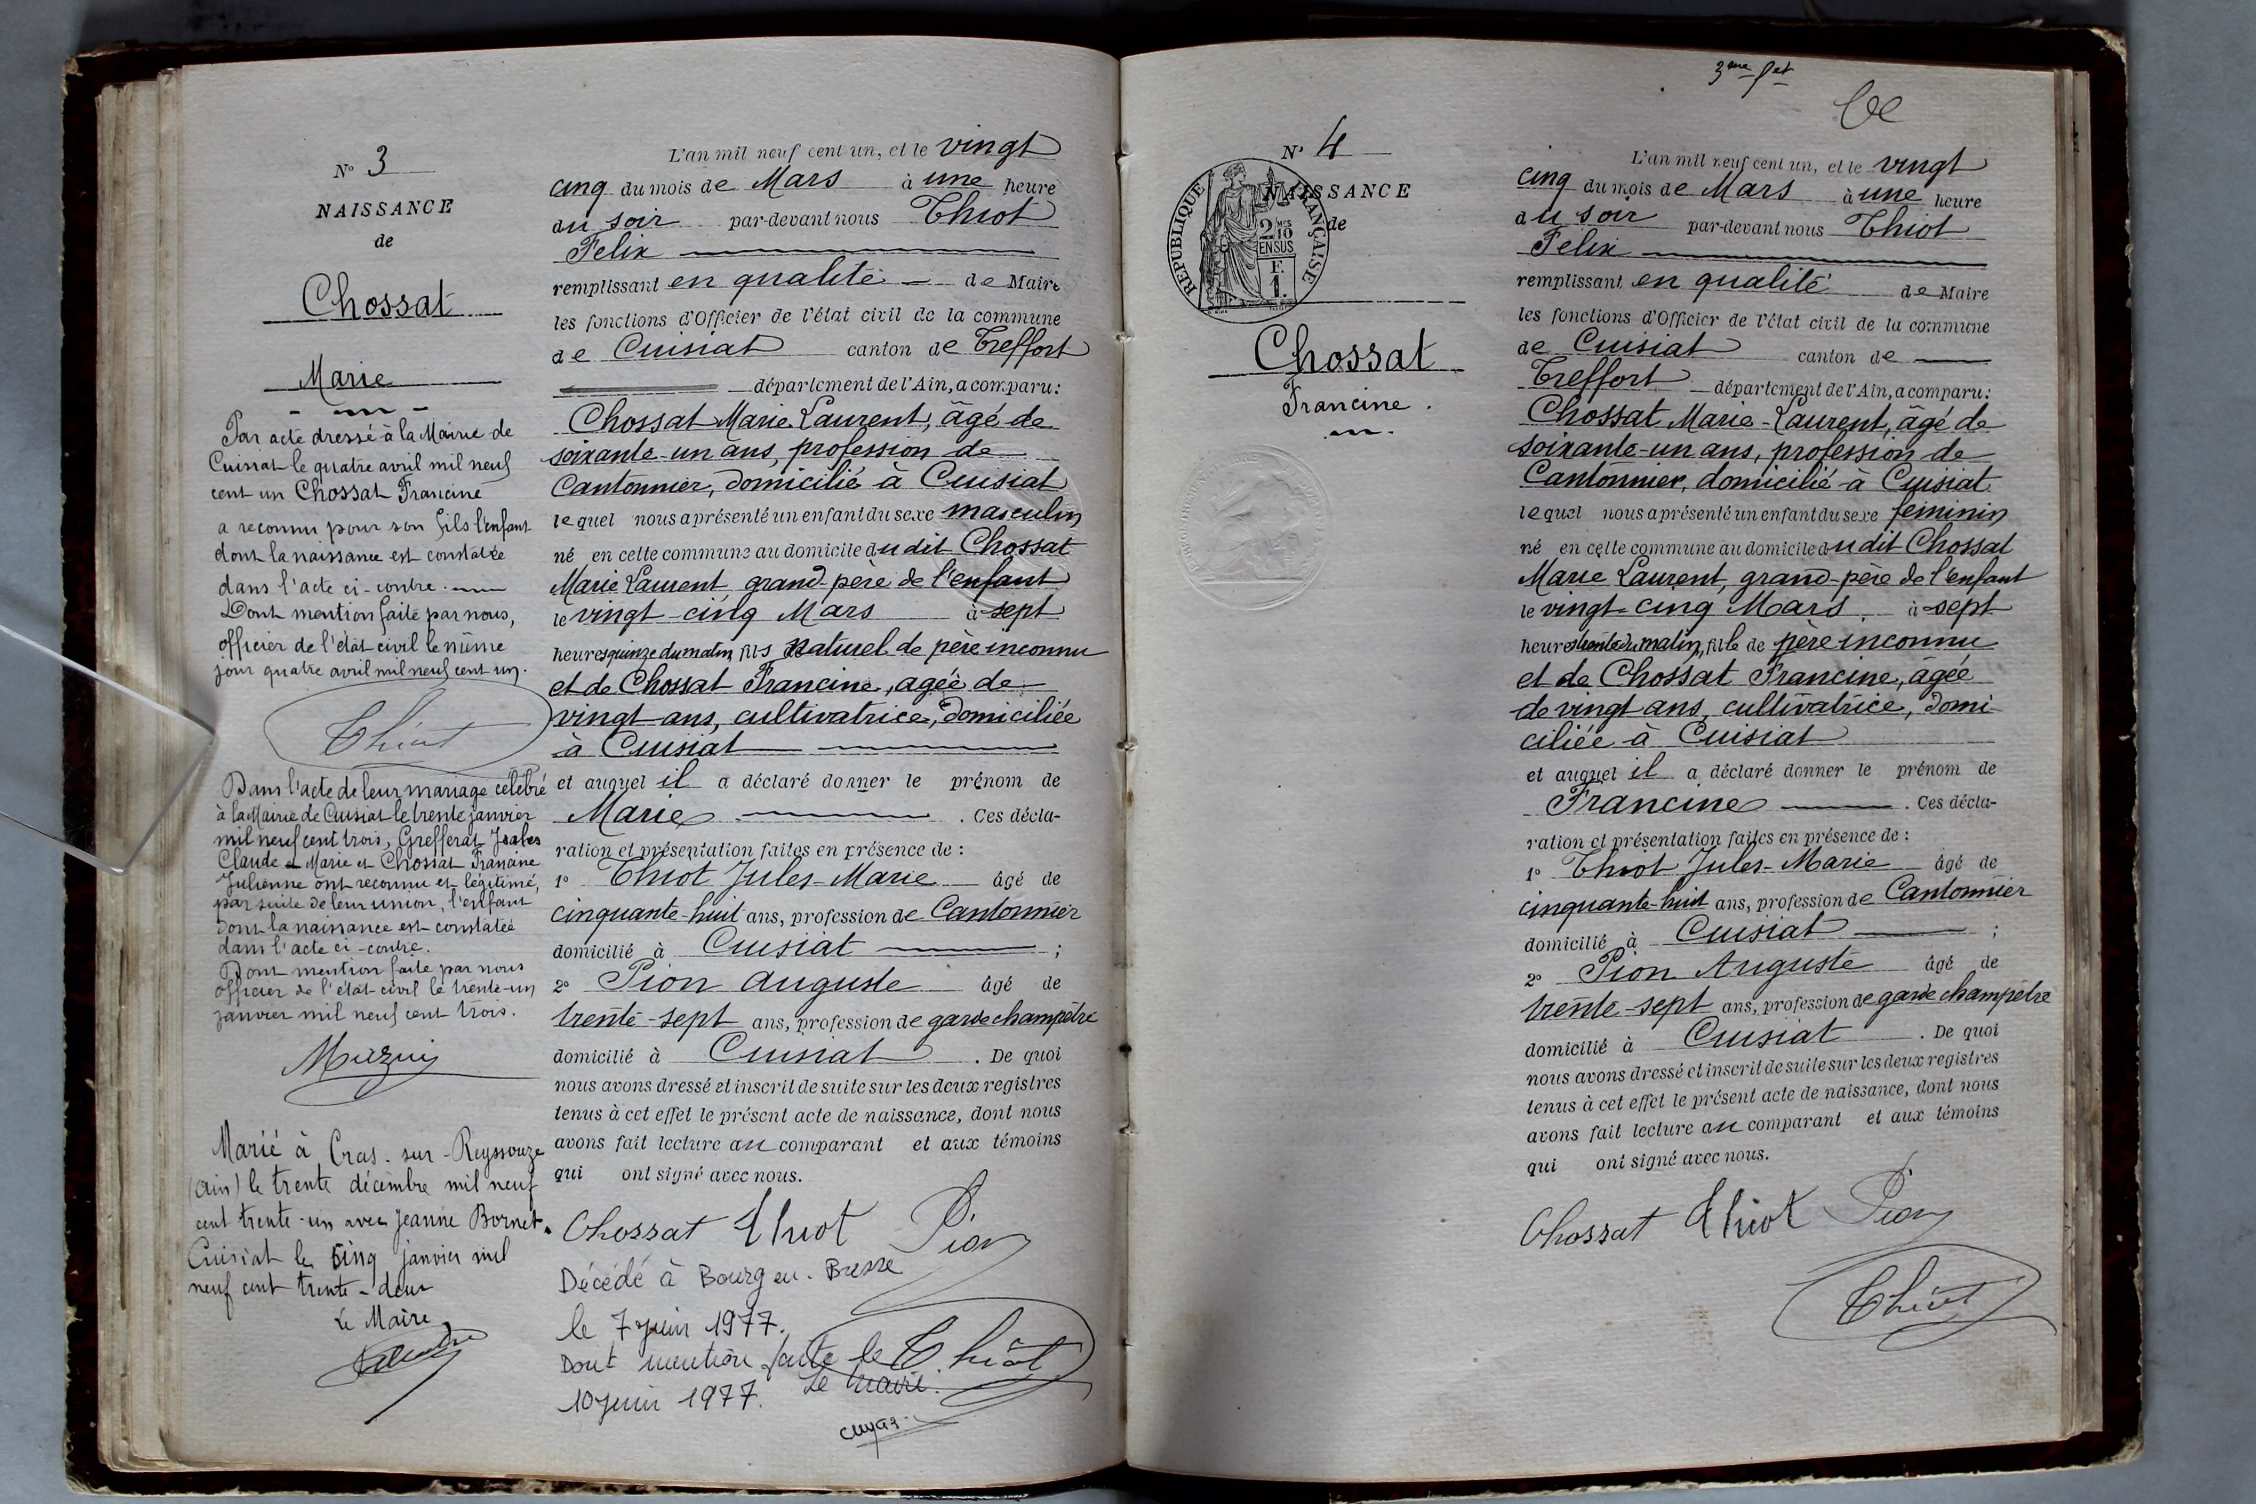 N° 3
NAISSANCE
de
Chossat
Marie
Par acte dressé à la Mairie de
Cuisiat le quatre avril mil neuf
cent un Chossat Francine
a reconnu pour son fils l'enfant
dont la naissance est constatée
dans l'acte ci-contre.
Dont mention faite par nous,
officier de l'état civil le même
jour quatre avril mil neuf cent un.
Thiot
Dans l'acte de leur mariage célébré
à la Mairie de Cuisiat le trente janvier
mil neuf cent trois, Grefferat
Claude Marie et Chossat Francine
Julienne ont reconnu et légitimé,
par suite de leur union, l'enfant
dont la naissance est constatée
dans l'acte ci-contre.
Dont mention faite par nous
officier de l'état civil le trente-un
janvier mil neuf cent trois.
Marié à Cras-sur-Reyssouze
(Ain) le trente décembre mil neuf
cent trente-un avec Jeanne Bornet.
Cuisiat le cinq janvier mil
neuf cent trente-deux
Le Maire
L'an mil neuf cent un, et le vingt
cinq du mois de Mars à une heure
du soir par-devant nous Thiot
Felix
remplissant en qualité de Maire
les fonctions d'Officier de l'état civil de la commune
de Cuisiat canton de Treffort
département de l'Ain, a comparu:
Chossat Marie Laurent, âgé de
soixante-un ans, profession de
Cantonnier, domicilié à Cuisiat
lequel nous a présenté un enfant du sexe masculin
né en cette commune au domicile dudit Chossat
Marie Laurent, grand-père de l'enfant
le vingt-cinq Mars à sept
heures quinze du matin, fils naturel de père inconnu
et de Chossat Francine, agée de
vingt ans, cultivatrice, domiciliée
à Cuisiat
et auquel il a déclaré donner le prénom de
Marie . Ces décla-
ration et présentation faites en présence de :
1° Thiot Jules-Marie âgé de
cinquante-huit ans, profession de Cantonnier
domicilié à Cuisiat ;
2° Pion Auguste âgé de
trente-sept ans, profession de garde champêtre
domicilié à Cuisiat . De quoi
nous avons dressé et inscrit de suite sur les deux registres
tenus à cet effet le présent acte de naissance, dont nous
avons fait lecture au comparant et aux témoins
qui ont signé avec nous.
Chossat Thiot Pion
Décédé à Bourg en-Bresse
le 7 juin 1977.
Dont mention faite le Thiot
10 juin 1977. Le Maire.
3me fet
N° 4
NAISSANCE
de
RÉPUBLIQUE FRANÇAISE
2/10 MES
EN SUS
F.
1.
Chossat
Francine.
L'an mil neuf cent un, et le vingt
cinq du mois de Mars à une heure
du soir par-devant nous Thiot
Felix
remplissant en qualité de Maire
les fonctions d'Officier de l'état civil de la commune
de Cuisiat canton de
Treffort département de l'Ain, a comparu:
Chossat Marie-Laurent, âgé de
soixante-un ans, profession de
Cantonnier, domicilié à Cuisiat
lequel nous a présenté un enfant du sexe feminin
né en cette commune au domicile dudit Chossat
Marie Laurent, grand-père de l'enfant
le vingt-cinq Mars à sept
heures trente du matin, fille de père inconnu
et de Chossat Francine, agée
de vingt ans, cultivatrice, domi-
ciliée à Cuisiat
et auquel il a déclaré donner le prénom de
Francine . Ces décla-
ration et présentation faites en présence de :
1° Thiot Jules-Marie âgé de
cinquante-huit ans, profession de Cantonnier
domicilié à Cuisiat ;
2° Pion Auguste âgé de
trente-sept ans, profession de garde champêtre
domicilié à Cuisiat . De quoi
nous avons dressé et inscrit de suite sur les deux registres
tenus à cet effet le présent acte de naissance, dont nous
avons fait lecture au comparant et aux témoins
qui ont signé avec nous.
Chossat Thiot Pion
Thiot